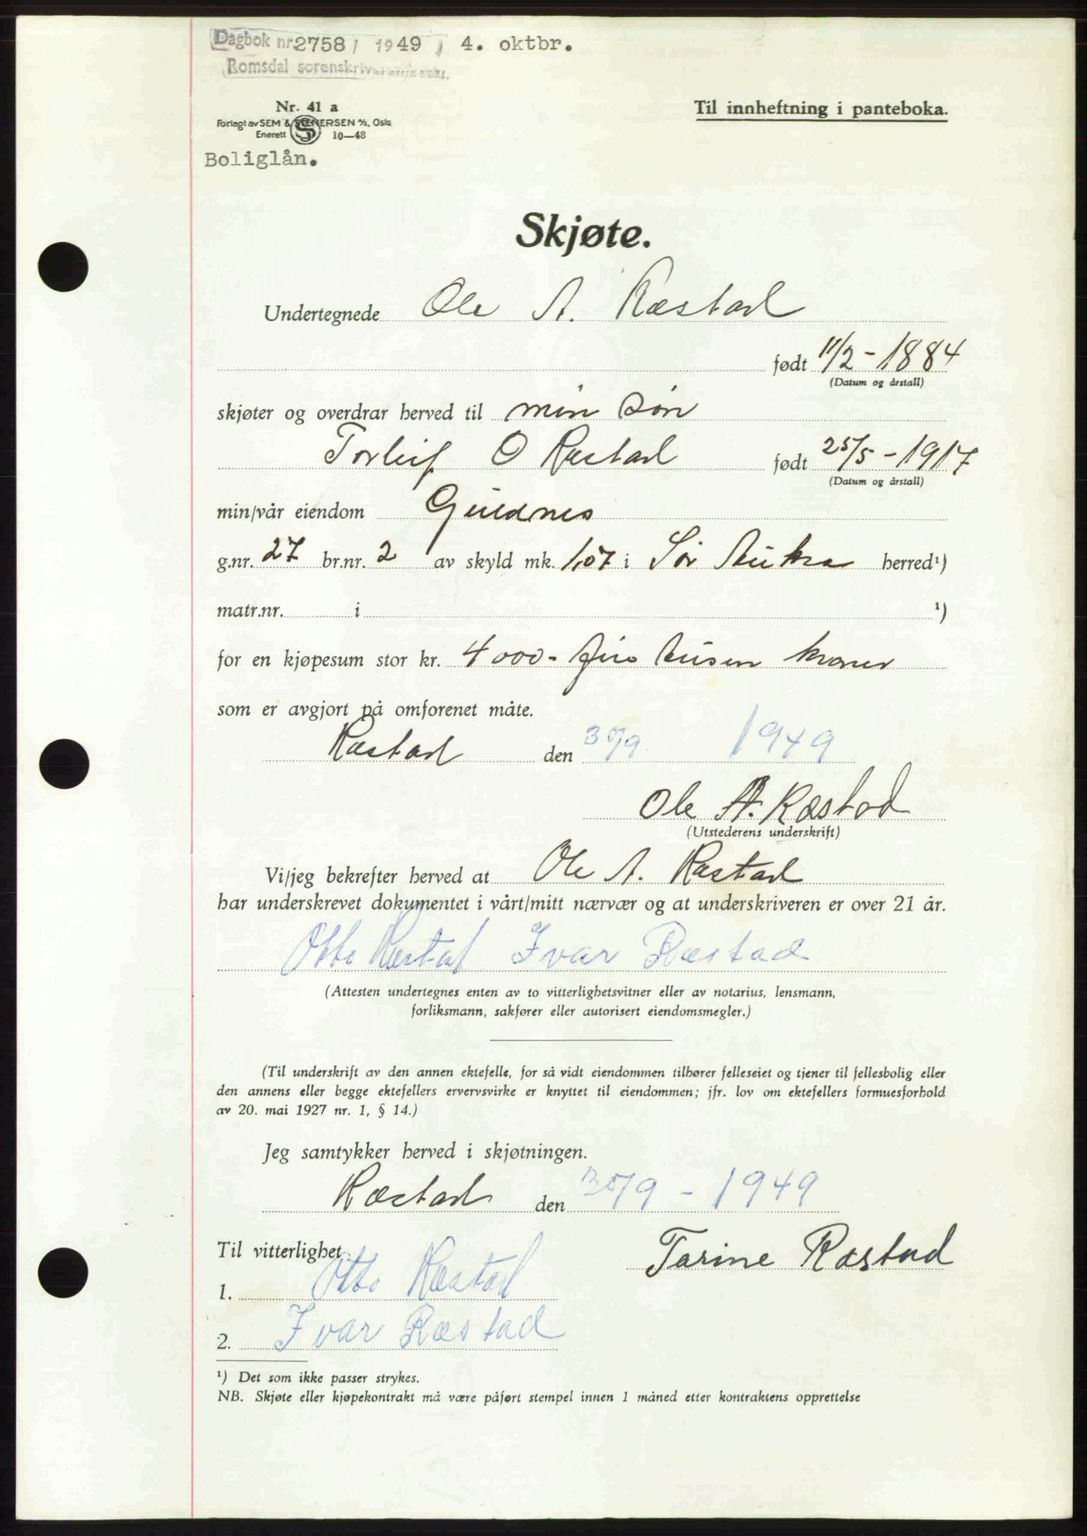 Dagbok nr. 2758 / 1949, 4. oktbr.
Romsdal sorenskriverembete.
Nr. 41 a
Forlagt av SEM & STENERSEN A/S, Oslo
Enerett S 10—48
Til innheftning i panteboka.
Boliglån.
Skjøte.
Undertegnede Ole A. Ræstad
født 11/2 - 1884
(Datum og årstall)
skjøter og overdrar herved til min søn
Torleif O Ræstad født 25/5 - 1917
(Datum og årstall)
min/vår eiendom
g.nr. 27 br.nr. 2 av skyld mk. 1,07 i Sør Aukra herred¹)
matr.nr. i ¹)
for en kjøpesum stor kr. 4000 - fire tusen kroner
som er avgjort på omforenet måte.
Ræstad den 30/9 1949
Ole A. Ræstad
(Utstederens underskrift)
Vi/jeg bekrefter herved at Ole A. Ræstad
har underskrevet dokumentet i vårt/mitt nærvær og at underskriveren er over 21 år.
Otto Ræstad Ivar Ræstad
(Attesten undertegnes enten av to vitterlighetsvitner eller av notarius, lensmann,
forliksmann, sakfører eller autorisert eiendomsmegler.)
(Til underskrift av den annen ektefelle, for så vidt eiendommen tilhører felleseiet og tjener til fellesbolig eller
den annens eller begge ektefellers ervervsvirke er knyttet til eiendommen; jfr. lov om ektefellers formuesforhold
av 20. mai 1927 nr. 1, § 14.)
Jeg samtykker herved i skjøtningen.
Ræstad den 30/9 - 1949
Til vitterlighet Tarine Ræstad
1. Otto Ræstad
2. Ivar Ræstad
¹) Det som ikke passer strykes.
NB. Skjøte eller kjøpekontrakt må være påført stempel innen 1 måned etter kontraktens opprettelse